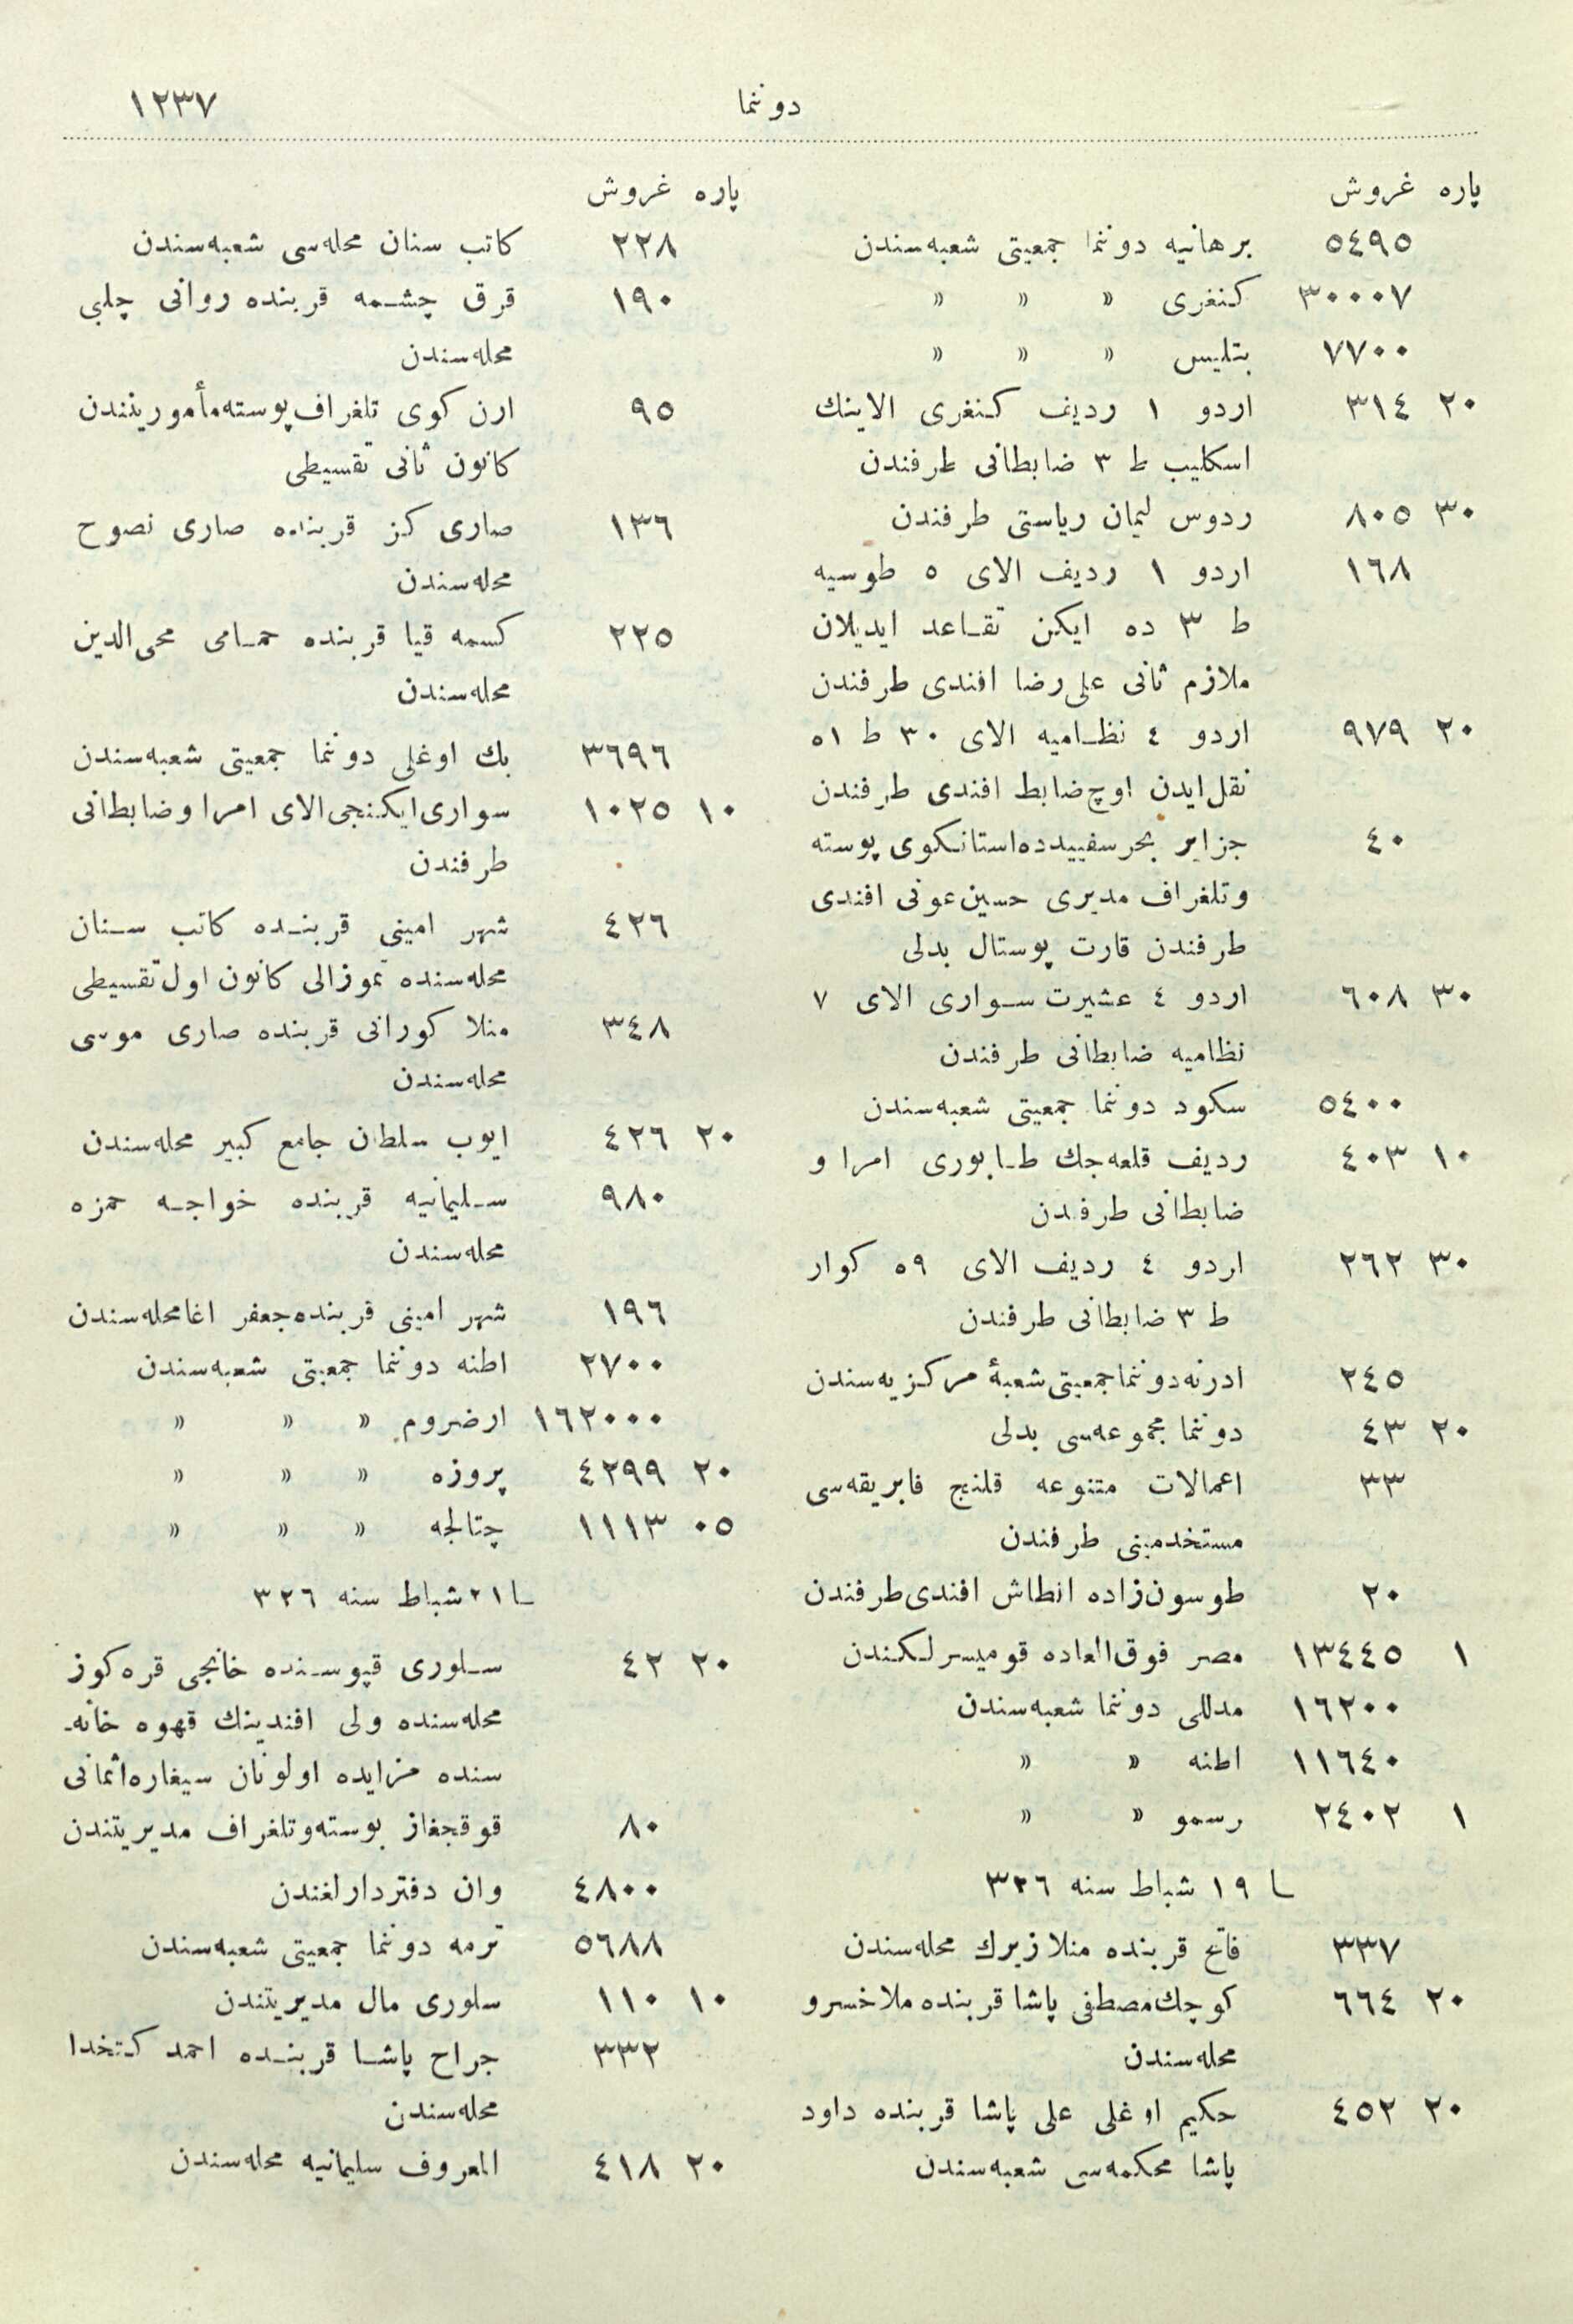 دوننما ١٢٣٧
پاره غروش
٥٤٩٥ برهانیه دوننما جمعیتی شعبه‌سندن
٣٠٠٠٧ کنغری » » »
٧٧٠٠ بتلیس » » »
٢٠ ٣١٤ اردو ١ ردیف کنغری الاینك
اسکلیب ط ٣ ضابطانی طرفندن
٣٠ ٨٠٥ ردوس لیمان ریاستی طرفندن
١٦٨ اردو ١ ردیف الای ٥ طوسیه
ط ٣ ده ایکن تقاعد ایدیلان
ملازم ثانی علی رضا افندی طرفندن
٢٠ ٩٧٩ اردو ٤ نظامیه الای ٣٠ ط ٥١
نقل ایدن اوچ ضابط افندی طرفندن
٤٠ جزایر بحرسفیدده استانکوی پوسته
وتلغراف مدیری حسین عونی افندی
طرفندن قارت پوستال بدلی
٣٠ ٦٠٨ اردو ٤ عشیرت سواری الای ٧
نظامیه ضابطانی طرفندن
٥٤٠٠ سکود دوننما جمعیتی شعبه‌سندن
١٠ ٤٠٣ ردیف قلعه‌جك طابوری امرا و
ضابطانی طرفدن
٣٠ ٢٦٢ اردو ٤ ردیف الای ٥٩ کوار
ط ٣ ضابطانی طرفندن
٢٤٥ ادرنه دوننما جمعیتی شعبهٔ مرکزیه‌سندن
٢٠ ٤٣ دوننما مجموعه‌سی بدلی
٣٣ اعمالات متنوعه قلنج فابریقه‌سی
مستخدمینی طرفندن
٢٠ طوسون‌زاده انطاش افندی طرفندن
١ ١٣٤٤٥ مصر فوق‌العاده قومیسرلکندن
١٦٢٠٠ مدللی دوننما شعبه‌سندن
١١٦٤٠ اطنه » »
١ ٢٤٠٢ رسمو » »
ــا ١٩ شباط سنه ٣٢٦
٣٣٧ فاتح قربنده منلا زیرك محله‌سندن
٢٠ ٦٦٤ کوچك مصطفی پاشا قربنده ملا خسرو
محله‌سندن
٢٠ ٤٥٢ حکیم اوغلی علی پاشا قربنده داود
پاشا محکمه‌سی شعبه‌سندن
پاره غروش
٢٢٨ کاتب سنان محله‌سی شعبه‌سندن
١٩٠ قرق چشمه قربنده روانی چلبی
محله‌سندن
٩٥ ارن کوی تلغراف پوسته مأموریتندن
کانون ثانی تقسیطی
١٣٦ صاری کز قربنده صاری نصوح
محله‌سندن
٢٢٥ کسمه قیا قربنده حمامی محی‌الدین
محله‌سندن
٣٦٩٦ بك اوغلی دوننما جمعیتی شعبه‌سندن
١٠ ١٠٢٥ سواری ایکنجی الای امرا وضابطانی
طرفندن
٤٢٦ شهر امینی قربنده کاتب سنان
محله‌سنده تموز الی کانون اول تقسیطی
٣٤٨ منلا کورانی قربنده صاری موسی
محله‌سندن
٢٠ ٤٢٦ ایوب سلطان جامع کبیر محله‌سندن
٩٨٠ سلیمانیه قربنده خواجه حمزه
محله‌سندن
١٩٦ شهر امینی قربنده جعفر اغا محله‌سندن
٢٧٠٠ اطنه دوننما جمعیتی شعبه‌سندن
١٦٢٠٠٠ ارضروم » » »
٢٠ ٤٢٩٩ پروزه » » »
٠٥ ١١١٣ چتالجه » » »
ــا ٢١ شباط سنه ٣٢٦
٢٠ ٤٢ سلوری قپوسنده خانجی قره کوز
محله‌سنده ولی افندینك قهوه خانه‌ـ
سنده مزایده اولونان سیغاره اثمانی
٨٠ قوقجغاز بوسته وتلغراف مدیریتندن
٤٨٠٠ وان دفتردارلغندن
٥٦٨٨ ترمه دوننما جمعیتی شعبه‌سندن
١٠ ١١٠ سلوری مال مدیریتندن
٣٣٢ جراح پاشا قربنده احمد کتخدا
محله‌سندن
٢٠ ٤١٨ المعروف سلیمانیه محله‌سندن